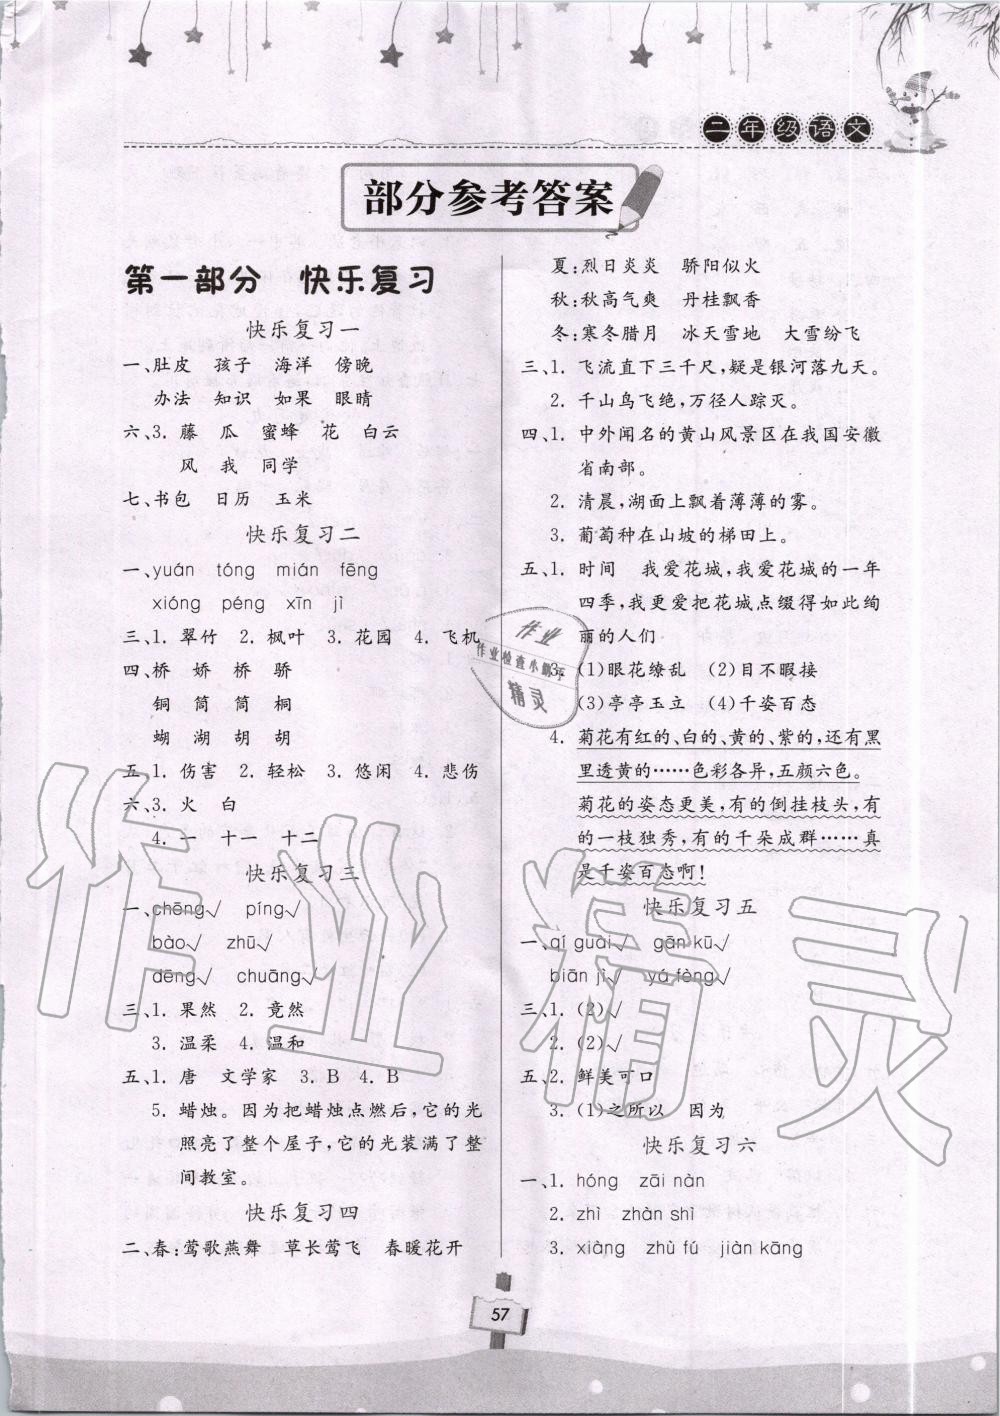 二年级语文
部分参考答案
第一部分 快乐复习
快乐复习一
一、肚皮 孩子 海洋 傍晚
办法 知识 如果 眼睛
六、3. 藤 瓜 蜜蜂 花 白云
风 我 同学
七、书包 日历 玉米
快乐复习二
一、yuán tóng mián fēng
xióng péng xīn jì
三、1. 翠竹 2. 枫叶 3. 花园 4. 飞机
四、桥 娇 桥 骄
铜 筒 筒 桐
蝴 湖 胡 胡
五、1. 伤害 2. 轻松 3. 悠闲 4. 悲伤
六、3. 火 白
4. 一 十一 十二
快乐复习三
一、chēng√ píng√
bào√ zhū√
dēng√ chuāng√
三、1. 果然 2. 竟然
3. 温柔 4. 温和
五、1. 唐 文学家 3. B 4. B
5. 蜡烛。因为把蜡烛点燃后,它的光
照亮了整个屋子,它的光装满了整
间教室。
快乐复习四
二、春:莺歌燕舞 草长莺飞 春暖花开
夏:烈日炎炎 骄阳似火
秋:秋高气爽 丹桂飘香
冬:寒冬腊月 冰天雪地 大雪纷飞
三、1. 飞流直下三千尺,疑是银河落九天。
2. 千山鸟飞绝,万径人踪灭。
四、1. 中外闻名的黄山风景区在我国安徽
省南部。
2. 清晨,湖面上飘着薄薄的雾。
3. 葡萄种在山坡的梯田上。
五、1. 时间 我爱花城,我爱花城的一年
四季,我更爱把花城点缀得如此绚
丽的人们
3. (1)眼花缭乱 (2)目不暇接
(3)亭亭玉立 (4)千姿百态
4. 菊花有红的、白的、黄的、紫的,还有黑
里透黄的……色彩各异,五颜六色。
菊花的姿态更美,有的倒挂枝头,有
的一枝独秀,有的千朵成群……真
是千姿百态啊!
快乐复习五
一、qí guài√ gān kū√
biān jì√ yá fèng√
三、1. (2)√
2. (2)√
五、2. 鲜美可口
3. (1)之所以 因为
快乐复习六
一、1. hóng zāi nàn
2. zhì zhàn shì
3. xiàng zhù fú jiàn kāng
57
作业
作业检查小帮手
精灵
作业精灵